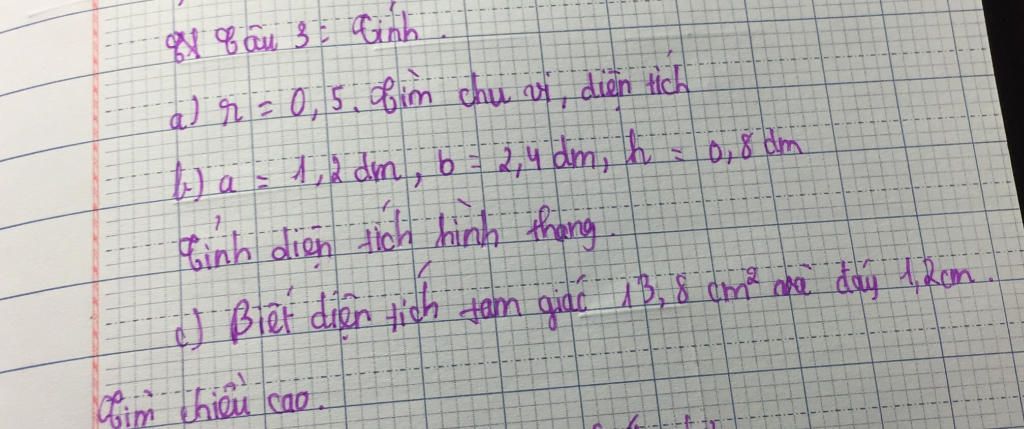 Câu 3: Tính.
a) r = 0,5. Tìm chu vi, diện tích
b) a = 1,2 dm, b = 2,4 dm, h = 0,8 dm
Tính diện tích hình thang.
c) Biết diện tích tam giác 13,8 cm² và đáy 1,2cm.
Tìm chiều cao.